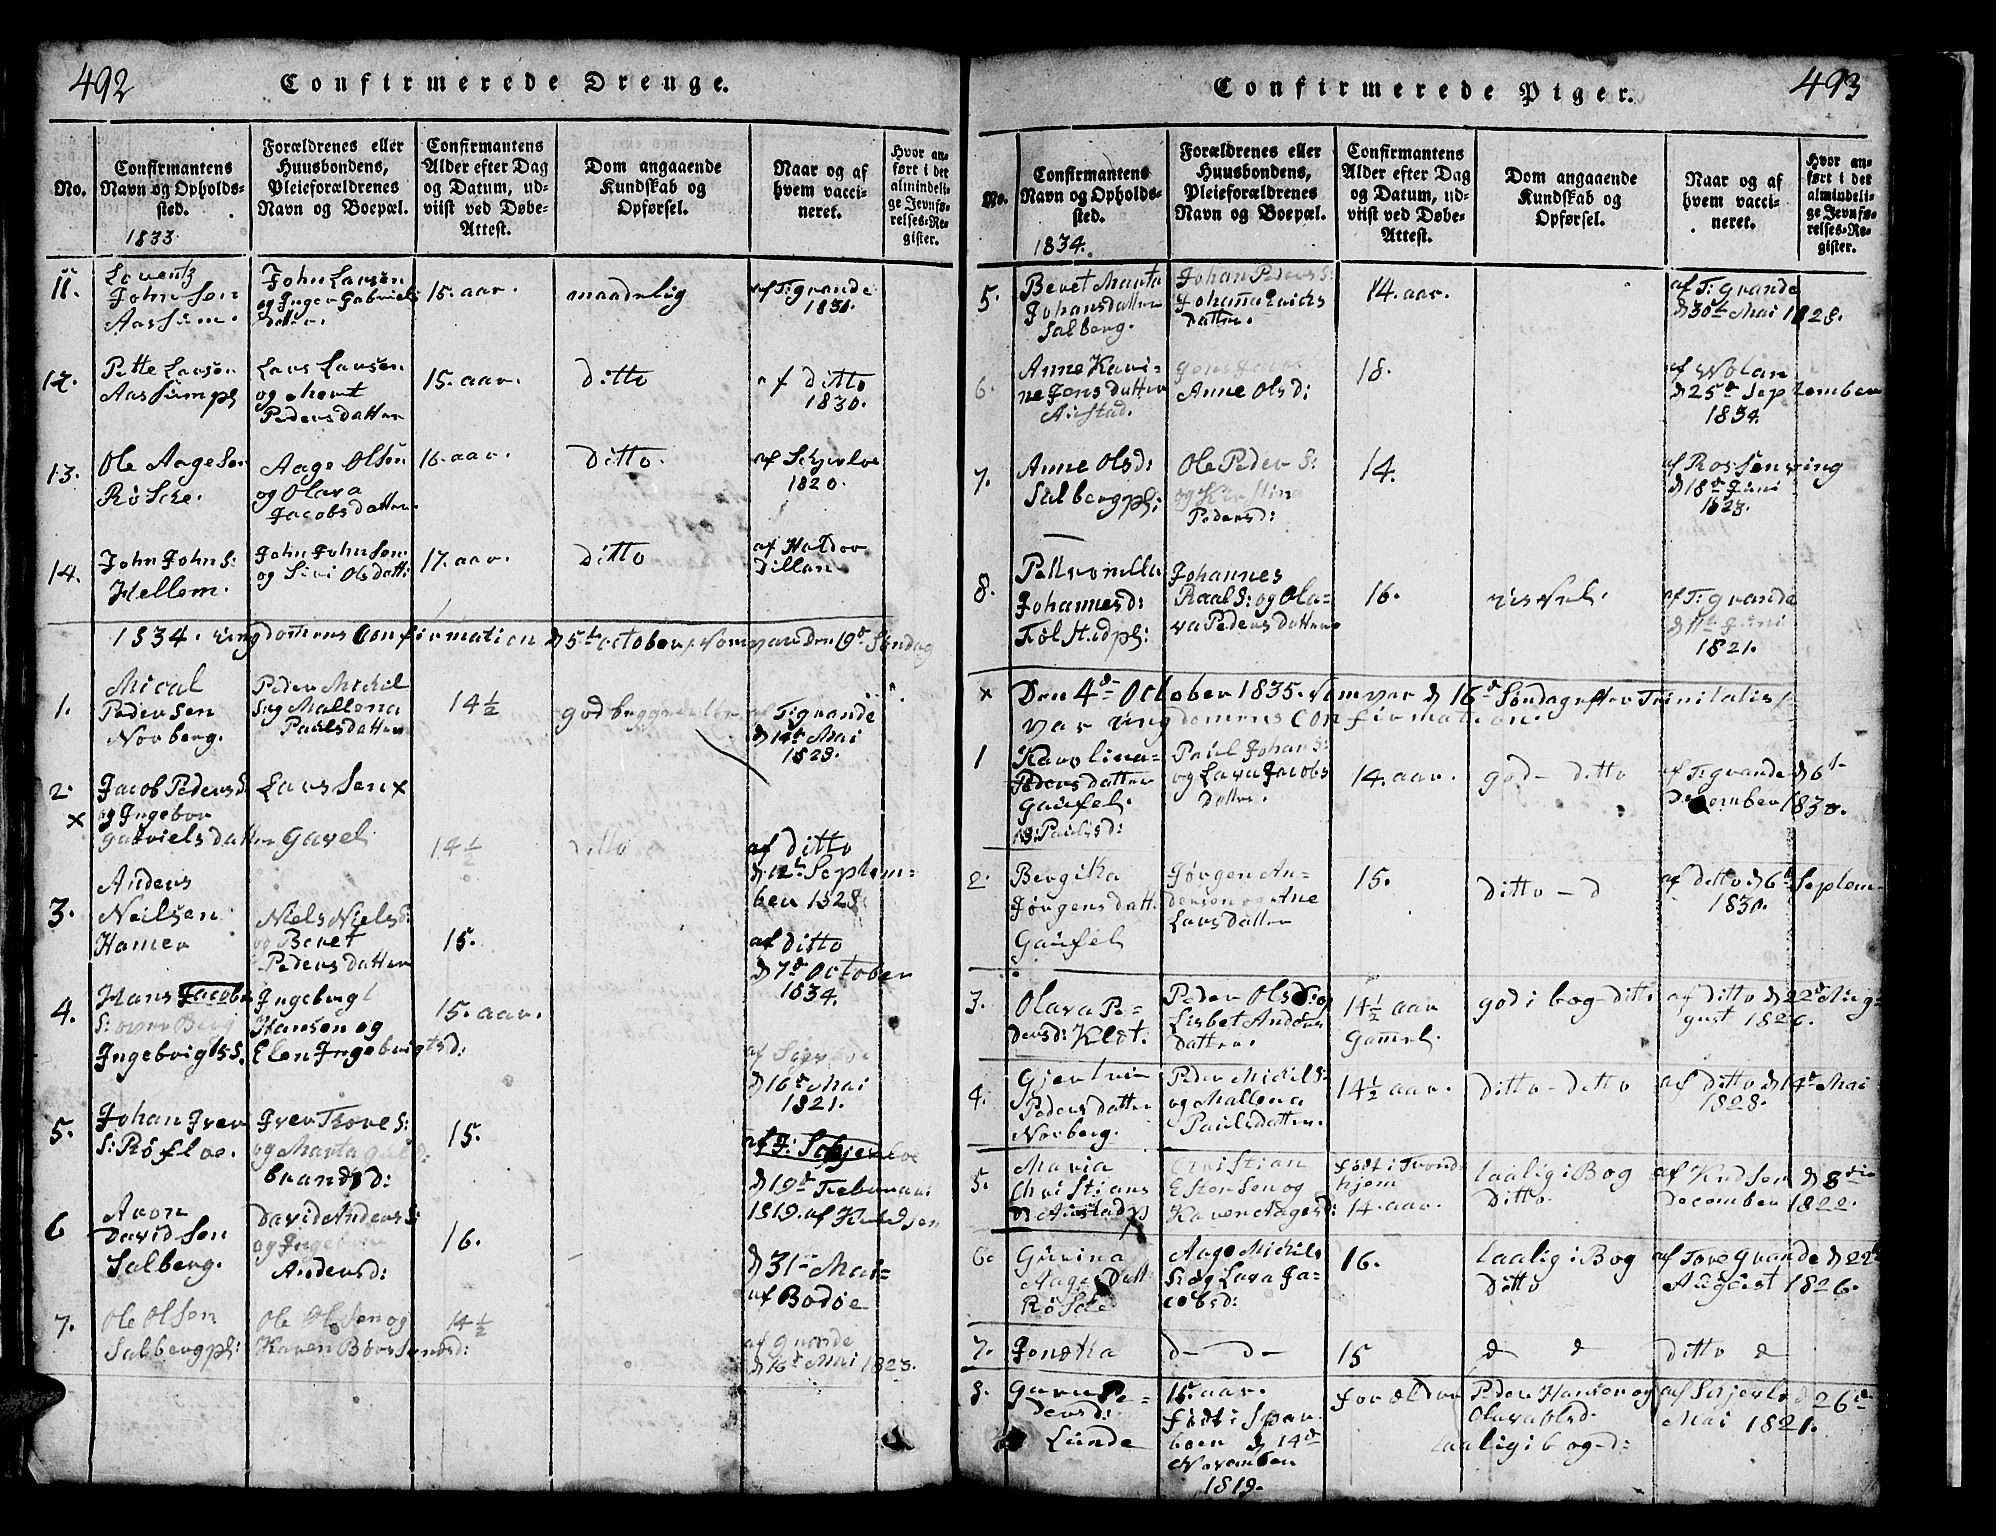 492
Confirmerede Drenge.
No.
Confirmantens
Navn og Opholds-
sted.
1833.
Forældrenes eller
Huusbondens,
Pleieforældrenes
Navn og Boepæl.
Confirmantens
Alder efter Dag
og Datum, ud-
viist ved Døbe-
Attest.
Dom angaaende
Kundskab og
Opførsel.
Naar og af
hvem vacci-
neret.
Hvor an-
ført i det
almindeli-
ge Jevnfø-
relses-Re-
gister.
11.
Lorentz
Johnsen
Aassum.
John Larsen
og Inger Gabriels
datter.
15. aar.
maadelig
af T: grande
1830.
12.
Pette Larsen
Aassumpl
Lars Larsen
og Meret
Pedersdatter
15. aar.
ditto
af ditto
1830.
13.
Ole Aagesen
Røske.
Aage Olsen
og Olava
Jacobsdatter
16. aar.
ditto.
af Schjerloe
1820.
14.
John John S:
Hellem.
John Johnsen
og Siri Olsdatt:
17. aar.
ditto
af Haldor
Dillan
1834. ungdomens Confirmation d 5te october, som var den 19d Søndag
1.
Mical
Pedersen
Norberg.
Peder Mickil
S: og Mallena
Paulsdatter
14½
god begge deele
af T: grande
d 14d Mai
1828.
2.
x
Jacob Peders S:
og Ingebor
gabrielsdatter
Larssen x
Gavel
14½
ditto
af ditto
d 12te Septem-
ber 1828
3.
Anders
Neilsen
Hamer
Niels Niels S:
og Beret
Pedersdatter
15.
af ditto
d 7d October
1834.
4.
Hans Jacob
S: over Berg
Ingebrigts S.
Ingebrigt
Hansen og
Elen Ingebrigtsd:
15. aar.
d 16d Mai
1821.
5.
Johan Iver
S: Røfloe.
Iver Tore S:
og Marta guld:
brandsd:
15.
af J: Schjerloe
d 19d Februari
1819. af Knudsen
6
Aron
Davidsen
Salberg.
David Anders S:
og Ingebor
Andersd:
16.
d 31- Mai-
af Bodøe
7.
Ole Olsen
Salbergpl:
Ole Olsen og
Karen Børs
14½
af grande
d 16d Mai 1828.
493
Confirmerede Piger.
No.
Confirmantens
Navn og Opholds-
sted.
1834.
Forældrenes eller
Huusbondens,
Pleieforældrenes
Navn og Boepæl.
Confirmantens
Alder efter Dag
og Datum, ud-
viist ved Døbe-
Attest.
Dom angaaende
Kundskab og
Opførsel.
Naar og af
hvem vacci-
neret.
Hvor an-
ført i det
almindeli-
ge Jevnfø-
relses-Re-
gister.
5.
Beret Marta
Johansdatter
Salberg.
Johan Peders S:
Johanna Erichs
datter.
14. aar.
af T: grande
d 30te Mai 1828.
6.
Anne Kari-
ne Jensdatter
Austad.
Anne Olsd:
18.
af Wolan
d 25d September
1834.
7.
Anne Olsd:
Salbergpl:
Ole Peder S:
og Kirstin
Pedersd:
14.
af Rossenving
d 18d Juni
1823.
8.
Petronella
Johannesd:
Følstadpl:
Johannes
Raal S: og Ola-
va Pedersdatter
16.
af T: grande
d 11te Juni
1821.
x
Den 4d October 1835. som var d 16d Søndag efter Trinitatis/
var ungdomens Confirmation.
1
Karolina-
Pedersdatter
Gaufel.
Paulsd:
Paul Johan S:
og Lava Jacobs
datter.
14. aar.
god - ditto
af T: grande d 6te
December 1830.
2.
Bergitta
Jørgensdatt:
Gaufel
Jørgen An-
dersen og Ane
Larsdatter
15.
ditto - d
af ditto d 6te Septem-
1830.
3.
Olava Pe-
dersd: Klot.
Peder Ols S: og
Lisbet Anders
datter.
14½ aar
gamel.
god i bog - ditto
af ditto d 22d Aug-
gust 1826.
4.
Gjertru-
Pedersdatter
Norberg.
Peder Mickil S:
og Mallena
Paulsdatter.
14½ aar.
ditto - ditto
af ditto d 14d Mai
1828.
5.
Maria
Christians
d: Austadpl
Christian
Estensen og
Karen Aagesd:
født i Trond-
hjem
14. aar.
laalig i Bog
ditto.
af Knudsen d 8die
December 1822.
6.
Gurina
Aages Datt
Røske
Aage Mickils
S: og Lava Ja-
cobsd:
16.
laalig i Bog
Ditto
af Tore Grande d 22d
August 1826.
7.
Jonetta
d- d-
15
d d
ditto d
8.
Guru Pe-
dersd:
Lunde
15. aar.
født i Spar-
boen d 14d
November
1819.
forældre
Peder Hansen og
Olava Olsd.
laalig i bog-d:
af Schjerlo d 26d
Mai 1821.